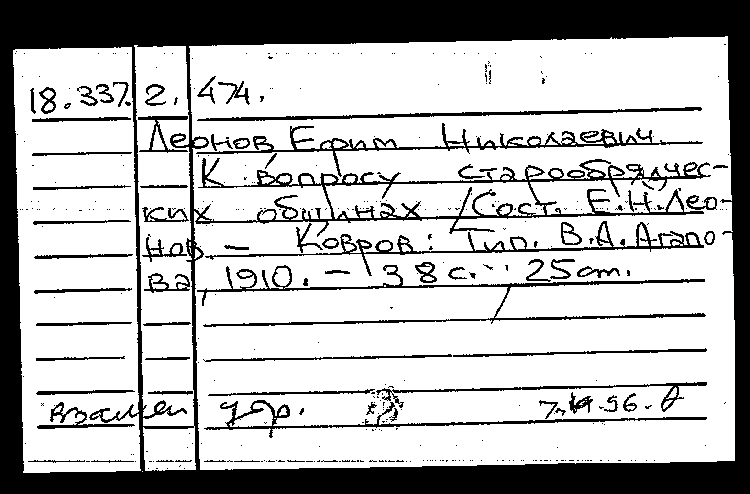 18.337.2. 474.
Леонов Ефим Николаевич.
К вопросу старообрядчес-
ких общинах / Сост. Е.Н. Лео-
нов. – Ковров: Тип. В.А. Агапо-
ва, 1910. – 38 с.; 25 cm.
взамен